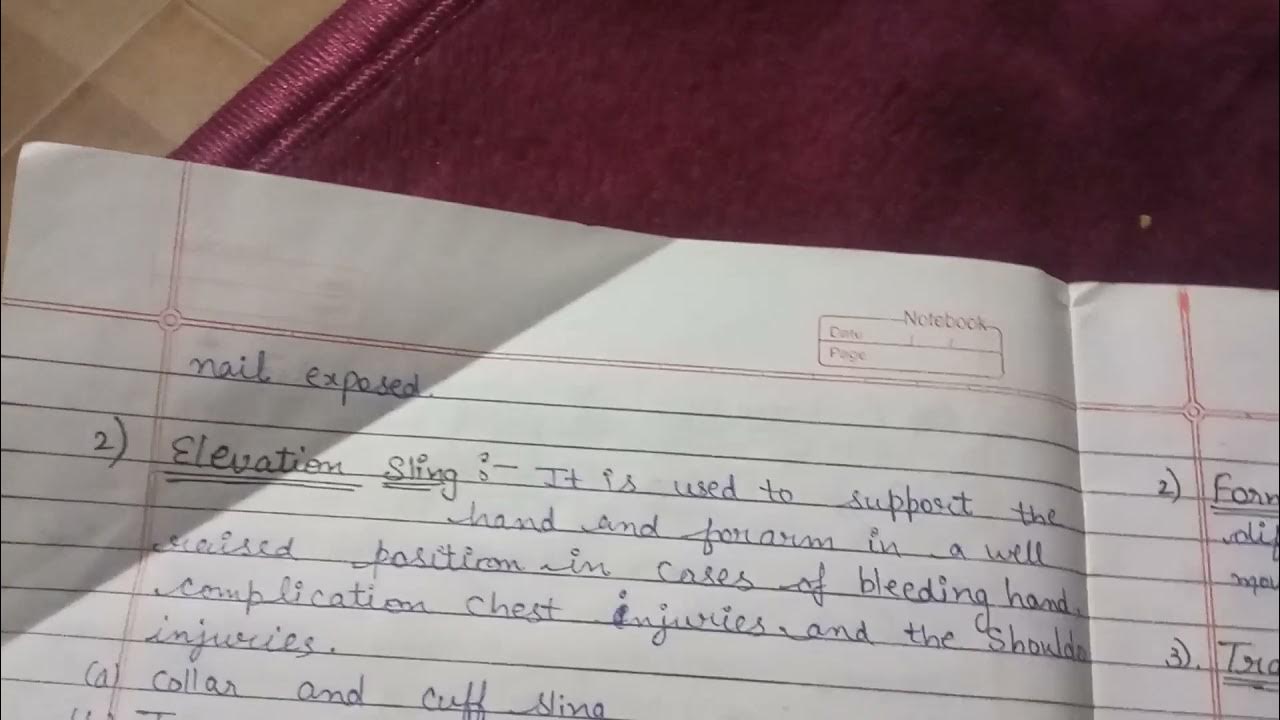 Notebook
Date
Page
nail exposed.
2) Elevation Sling :- It is used to support the
hand and forarm in a well
raised position in cases of bleeding hand,
complication chest injuries and the Shoulde
injuries.
(a) collar and cuff sling
2) Form
3). Tra